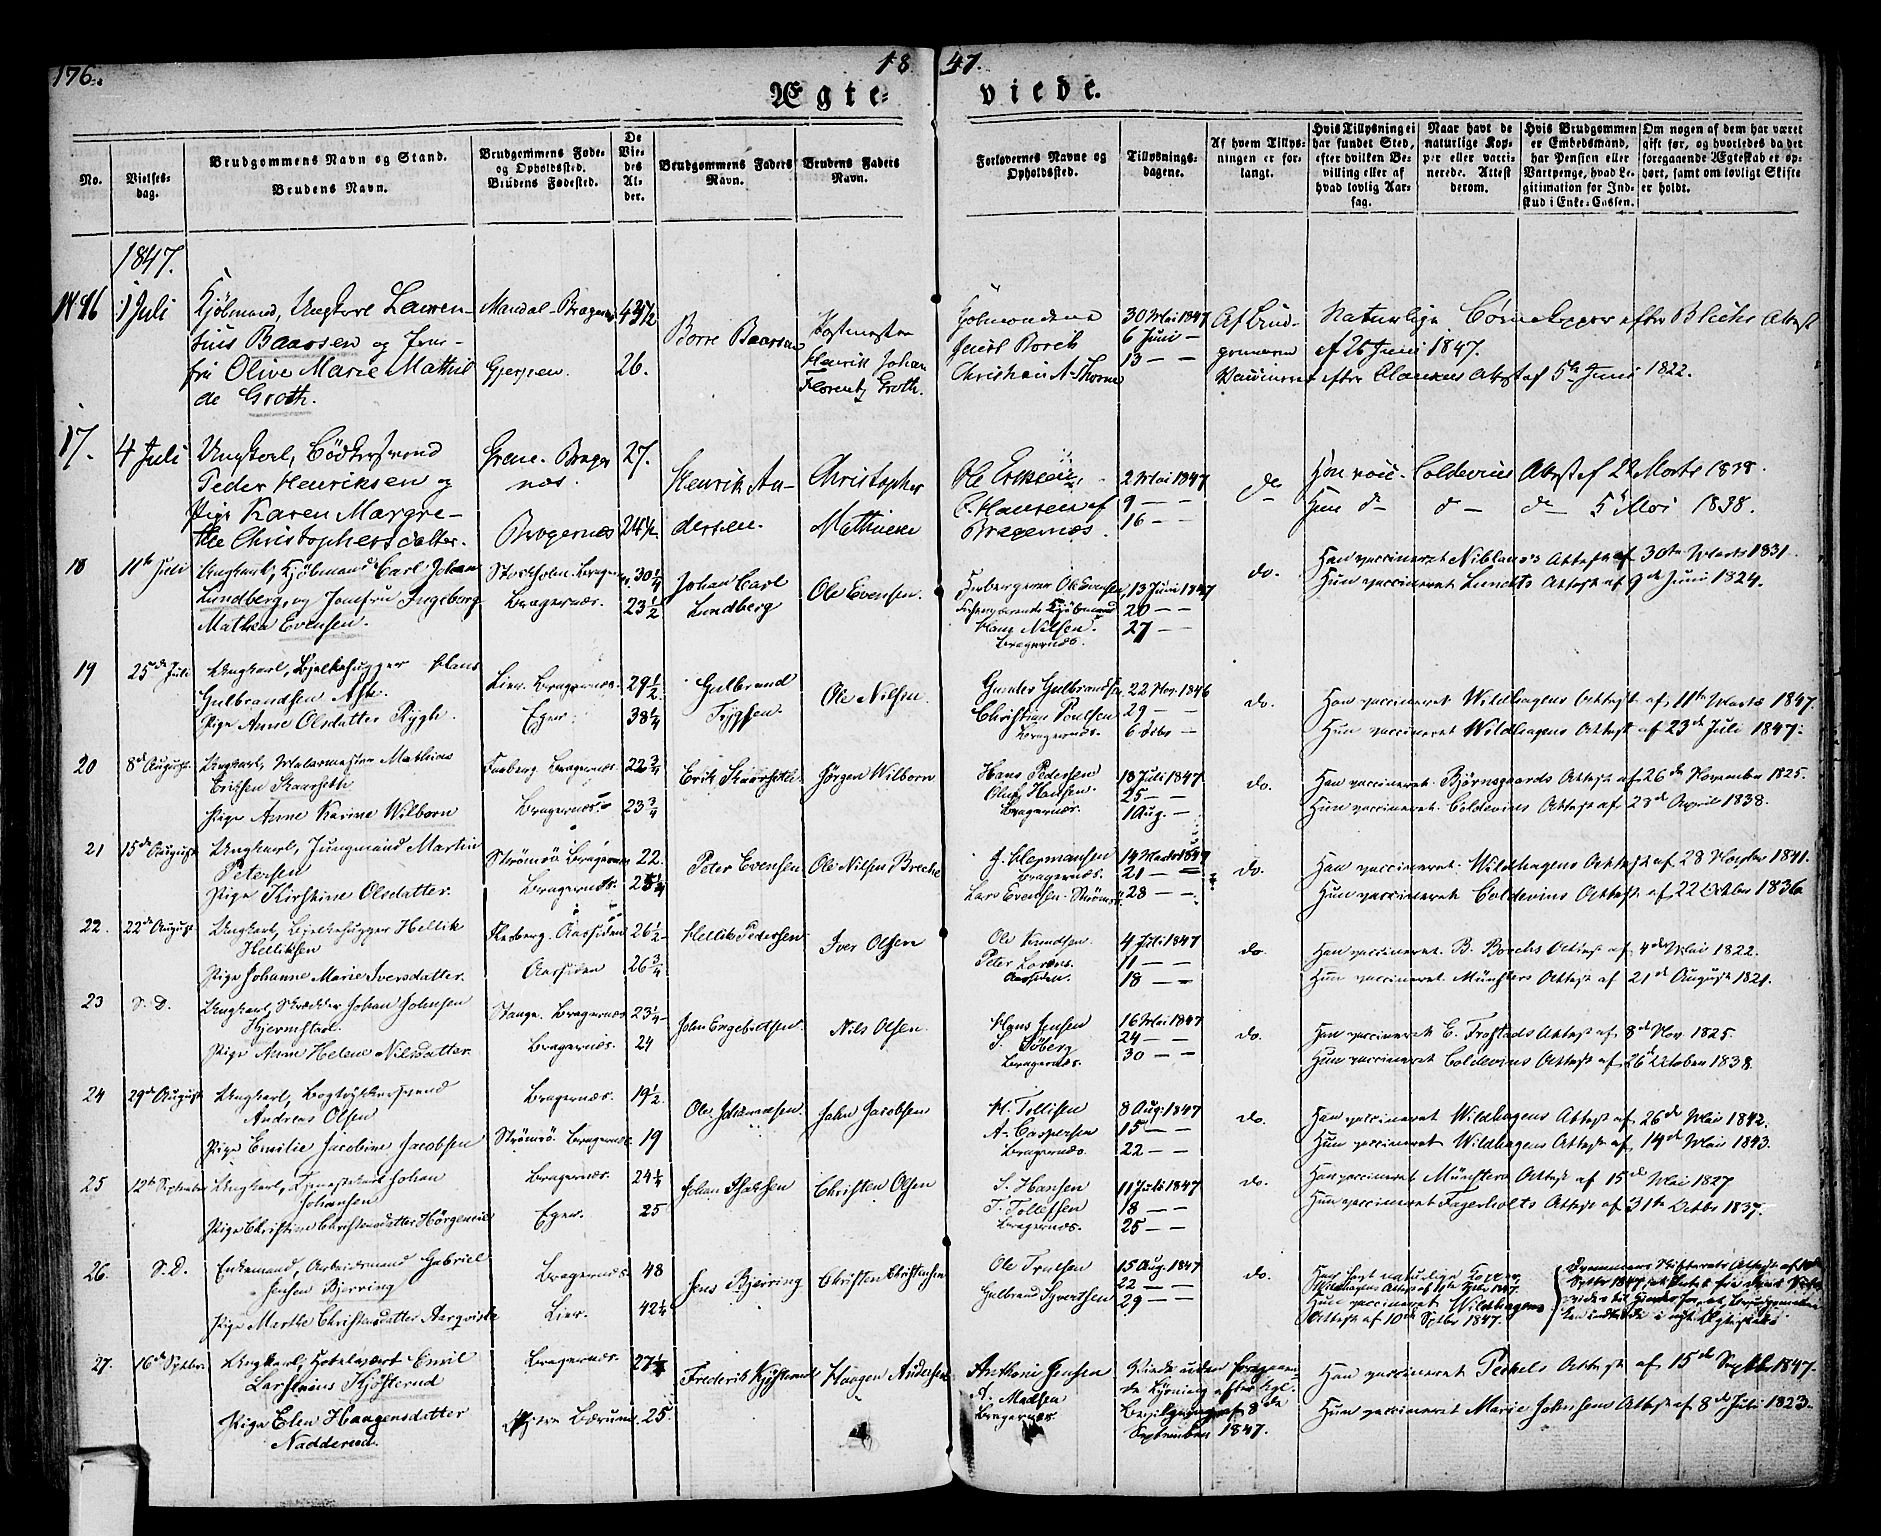 176.
18 47.
Ægte- viede.
No.
Vielses-
dag.
Brudgommens Navn og Stand.
Brudens Navn.
Brudgommens Føde-
og Opholdssted.
Brudens Fødested.
De
Vie-
des
Al-
der.
Brudgommens Faders
Navn.
Brudens Faders
Navn.
Forlovernes Navne og
Opholdssted.
Tillysnings-
dagene.
Af hvem Tillys-
ningen er for-
langt.
Hvis Tillysning ei
har fundet Sted,
efter hvilken Be-
villing eller af
hvad lovlig Aar-
sag.
Naar havt de
naturlige Kop-
per eller vacci-
nerede. Attest
derom.
Hvis Brudgommen
er Embedsmand,
har Pension eller
Vartpenge, hvad Le-
gitimation for Ind-
skud i Enke-Cassen.
Om nogen af dem har været
gift før, og hvorledes da det
foregaaende Ægteskab er op-
hørt, samt om lovligt Skifte
er holdt.
1847.
16 1 Juli Kjøbmand, Ungkarl Lauren-
tius Baarsen og Jom-
fru Olive Marie Mathil-
de Groth.
Mandal - Bragernes 43 1/2
26.
Borre Baarsen
Postmester
Henrik Johan
Florentz Groth.
Kjøbmændene
Jacob Borch
Christian A. Thorne
30 Mai 1847
6 Juni -
13 - -
Af Brud-
gommen
Naturlige Børnekopper efter Blichs Attest
af 26 Juni 1847.
Vaccineret efter Attest af 5te Juni 1822.
17. 4 Juli Ungkarl, Bødkersvend
Peder Henriksen og
Pige Karen Margre-
the Christophersdatter.
Bragernæs
27.
24 1/2
Henrik An-
dersen.
Christopher
Mathiesen
Ole Eriksen,
C. Hansen af
Bragernæs.
2 Mai 1847
9 - -
16 - -
do
Han vacc. Coldevins Attest af 22 Marts 1838.
Hun do - do - do 5 Mai 1838.
18 11te Juli Ungkarl, Kjøbmand Carl Johan
Lundberg, og Jomfru Ingeborg
Mathea Evensen.
Stockholm. Bragernæs 30 1/4
Bragernæs. 23 1/2
Johan Carl
Lundberg
Ole Evensen.
Ole Evensen,
Kjøbmand
Hans Nilsen.
Bragernæs.
13 Juni 1847
20 - -
27 - -
do.
Han vaccineret Nicolais Attest af 30te Marts 1831.
Hun vaccineret Lundts Attest af 9de Juni 1824.
19 25de Juli Ungkarl, Bjelkehugger Hans
Gulbrandsen Ask.
Pige Anne Olsdatter Rygh.
Lier. Bragernæs. 29 1/2
Eger. 38 1/4
Gulbrand
Trygsen.
Ole Nilsen.
Gunder Gulbrandsen
Christian Poulsen
Bragernæs.
22 Nov. 1846
29 - -
6 Debr -
do.
Han vaccineret Wildhagens Attest af 11te Marts 1847.
Hun vaccineret Wildhagens Attest af 23de Juli 1847.
20 8de August Ungkarl, Malermester Mathias
Erichsen Skaarseth
Pige Anne Karine Wilborn
Faaberg Bragernæs 22 3/4
Bragernæs. 23 3/4
Erik Skaarseth
Jørgen Wilborn
Hans Pedersen
Oluf Hansen.
Bragernæs.
18 Juli 1847.
25 - -
1 Aug. -
do.
Han vaccineret Bjørnsgaards Attest af 26de November 1825.
Hun vaccineret. Coldevins Attest af 28de April 1838.
21 15de August Ungkarl, Jungmand Martin
Petersen
Pige Kirstine Olsdatter.
Strømsø Bragernæs 22.
Bragernæs. 25 1/4
Peter Evensen
Ole Nilsen Breche
J. Hermansen
Bragernæs.
Lars Evensen. Strømsø
14 Marts 1847
21 - -
28 - -
do.
Han vaccineret. Wildhagens Attest af 28 October 1841.
Hun vaccineret Coldevins Attest af 22 Octbr 1836.
22. 22de August Ungkarl, Bjelkehugger Hellik
Helliksen
Pige Johanne Marie Iversdatter.
Flesberg. Aassiden 26 1/2
Aassiden 26 3/4
Hellik Pedersen
Iver Olsen
Ole Knudsen.
Peter Lorens.
Aassiden.
4 Juli 1847
11 - -
18 - -
do.
Han vaccineret. B. Borchs Attest af 4de Mai 1822.
Hun vaccineret Münsters Attest af 21de August 1821.
23 S. D. Ungkarl, Skrædder Johan Johnsen
Hjermstad.
Pige Anne Helene Nilsdatter.
Stange. Bragernæs 23 1/4
Bragernæs. 24
John Engebretsen.
Nils Olsen.
Hans Jensen
S. Søberg
Bragernæs.
16 Mai 1847
24 - -
30 - -
do.
Han vaccineret E. Frostads Attest af 8de Nov. 1825.
Hun vaccineret Coldevins Attest af 26de October 1838.
24 29de August Ungkarl, Bogtrykkersvend
Andreas Olsen
Pige Emilie Jacobine Jacobsen
Bragernæs. 19 1/2
Strømsø Bragernæs 19
Ole Johannesen.
John Jacobsen
H. Tollefsen
A. Caspersen
Bragernæs.
8 Aug. 1847
15 - -
22 - -
do.
Han vaccineret Wildhagens Attest af 26de Mai 1842.
Hun vaccineret Wildhagens Attest af 14de Mai 1843.
25 12te September Ungkarl, Johan
Johansen
Pige Christine Christensdatter
Bragernæs. 24 1/4
Eger. 25
Christen Olsen
S. Hansen
T. Tollefsen
Bragernæs.
11 Juli 1847
18 - -
25 - -
do.
Han vaccineret Münsters Attest af 15de Mai 1827
Hun vaccineret Fagerholts Attest af 31te Octbr 1837.
26. S. D. Enkemand, Arbeidsmand Gabriel
Jensen Bjerring
Pige Marthe Christensdatter
Bragernæs. 48
Lier. 42 1/4
Jens Bjerring
Christen Christensen
Ole Truelsen
Gulbrand Syvertsen
15 Aug. 1847
22 - -
29 - -
do.
Han havt naturlige Kopper
Wildhagens Attest
Hun vaccineret Wildhagens
Attest af 10de Septbr 1847.
Drammens Skifterets Attest af
Septbr 1847
27. 16de Septbr. Ungkarl, Hotelvært Emil
Kjøsterud
Pige Elen Haagensdatter
Nadderud.
Bragernæs.
Bærum. 25.
Frederik Kjøsterud
Haagen Andersen
Anthoni Jensen
A. Madsen
Bragernæs.
Viede uden foregaaen-
de Lysning efter kgl.
Bevilgning af 8de
September 1847.
Han vaccineret Attest af 15de Septbr 1847.
Hun vaccineret Marie Johnsens Attest af 8de Juli 1823.